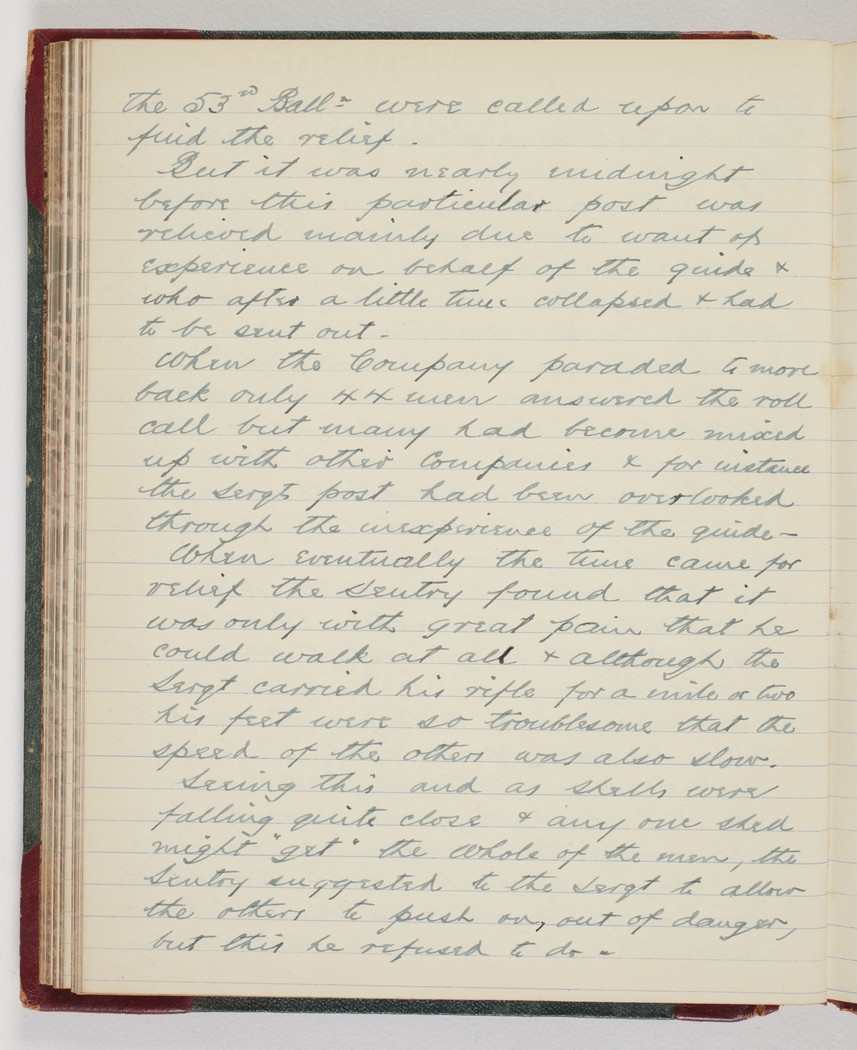 the 53rd Battn were called upon to
find the relief.
But it was nearly midnight
before this particular post was
relieved mainly due to want of
experience on behalf of the guide &
who after a little time collapsed & had
to be sent out -
When the Company paraded to move
back only 44 men answered the roll
call but many had become mixed
up with other Companies & for instance
the Sergts post had been overlooked
through the inexperience of the guide -
When eventually the time came for
relief the Sentry found that it
was only with great pain that he
could walk at all & although the
Sergt carried his rifle for a mile or two
his feet were so troublesome that the
speed of the others was also slow.
Seeing this and as shells were
falling quite close & any one shell
might "get" the whole of the men, the
Sentry suggested to the Sergt to allow
the others to push on, out of danger,
but this he refused to do -